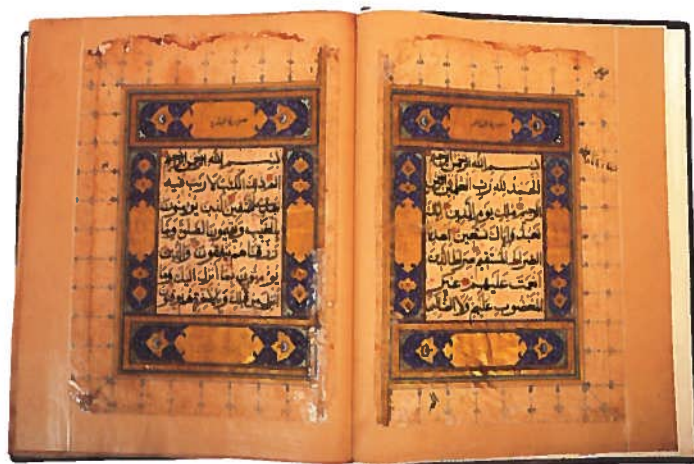 بسم الله الرحمن الرحيم
الحمد لله رب العلمين الرحمن
الرحيم ملك يوم الدين اياك
نعبد واياك نستعين اهدنا
الصراط المستقيم صراط الذين
انعمت عليهم غير
المغضوب عليهم ولا الضالين
بسم الله الرحمن الرحيم
الم ذلك الكتب لا ريب فيه
هدى للمتقين الذين يؤمنون
بالغيب ويقيمون الصلوة ومما
رزقناهم ينفقون والذين
يؤمنون بما انزل اليك وما
انزل من قبلك وبالاخرة هم يوقنون